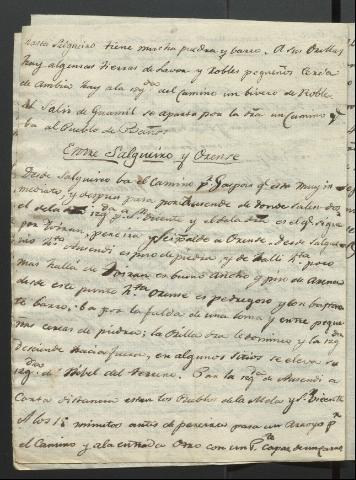 hasta Salgueiro tiene mucha piedra y barro. A sus Orillas
hay algunas tierras de lavor y robles pequeños Cerca
de Ambia hay a la izqda del camino un bivero de Roble
Al Salir de Guamil se aparta por la dra un Camino qe
ba al Pueblo de Baños
Entre Salgueiro y Orense
Desde Salgueiro ba el camino pr qe esta muy in
mediato, y despues pasa por Ausende de donde salen dos
el de la izqda y el de la dra es el qe sigue
por Pereira y Seijalbo a Orense. desde Salguei
ro hta Ausende es poco de piedra, y de halli hta poco
mas halla de es bueno Ancho y piso de Arena
desde este punto hta Orense es pedregoso y con bastan
te barro, ba por la falda de una loma y entre peque
ñas cercas de piedra; la Orilla dra le domina y la izqda
desciende hacia fuera, en algunos Sitios se eleva
izqda del Nibel del Terreno. Por la izqda de Ausende a
Corta distancia estan los Pueblos de la Mela y Sn Vicente
A los 15 minutos antes de Pereiras pasa un Arroyo pr
el Camino y a la entrada Otro con un Pte capaz de